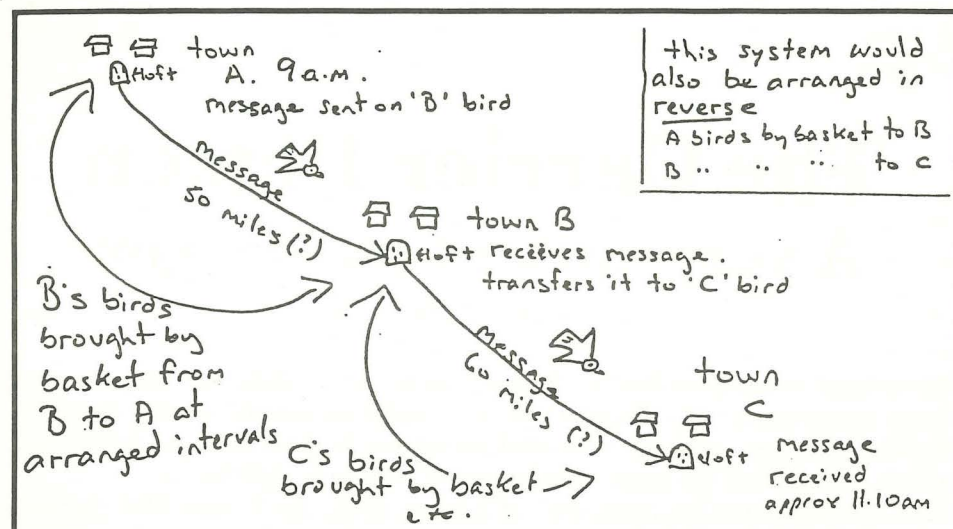 town
A. 9 a.m.
loft
message sent on 'B' bird
this system would
also be arranged in
reverse
A birds by basket to B
B " " " to C
message
50 miles (?)
town B
loft receives message.
transfers it to 'C' bird
B's birds
brought by
basket from
B to A at
arranged intervals
message
60 miles (?)
C's birds
brought by basket
etc.
town
C
loft
message
received
approx 11.10am